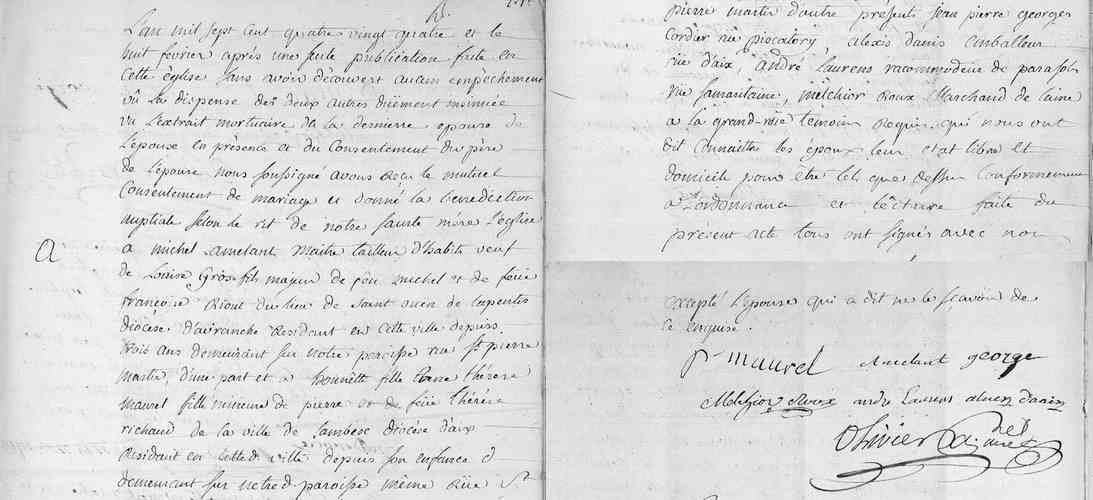 L'an mil sept cent quatre vingt quatre et le
huit fevrier après une seule publication faite en
cette église sans avoir découvert aucun empechement
vû la dispense des deux autres düement insinuée
vu l'extrait mortuaire de la derniere epouse de
l'epoux en présence et du Consentement du père
de l'épouse nous soussigné avons Recu le mutuel
Consentement de mariage et donné la benediction
nuptiale selon le rit de notre sainte mère l'eglise
a michel amelant maitre tailleur d'habits veuf
de Louise Gros fils majeur de feu michel et de feüe
françoise Rioux du lieu de saint ouen de
diocèse d'avranche Residant en cette ville depuis
trois ans demeurant sur notre paroisse rue St pierre
martir, d'une part et a honnête fille thérese
maurel fille mineure de pierre et de feüe thérèse
richaud de la ville de lambesc diocèse d'aix
Residant en cette d. ville depuis son enfance et
demeurant sur notre d. paroisse même Rüe St
a
pierre martir d'autre présents jean pierre george
Cordier rüe piscatory, alexis danis emballeur
rüe d'aix, andré Laurens racommodeur de parasols
rüe samaritaine, melchior Roux Marchand de laine
a la grand-rüe temoins Requis qui nous ont
dit Connaitre les epoux leur etat libre et
domicile pour etre tel que dessus Conformement
a l'ordonnance et lécture faite du
présent acte tous ont signés avec nous
excepté l'epouse qui a dit ne le sçavoir de
ce enquise.
P. maurel Amelant george
Melchior Roux andre Laurens
Olivier